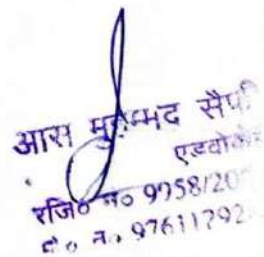 आस मुहम्मद सैफी
एडवोकेट
रजि० नं० 9958/20
मो० नं० 97611792